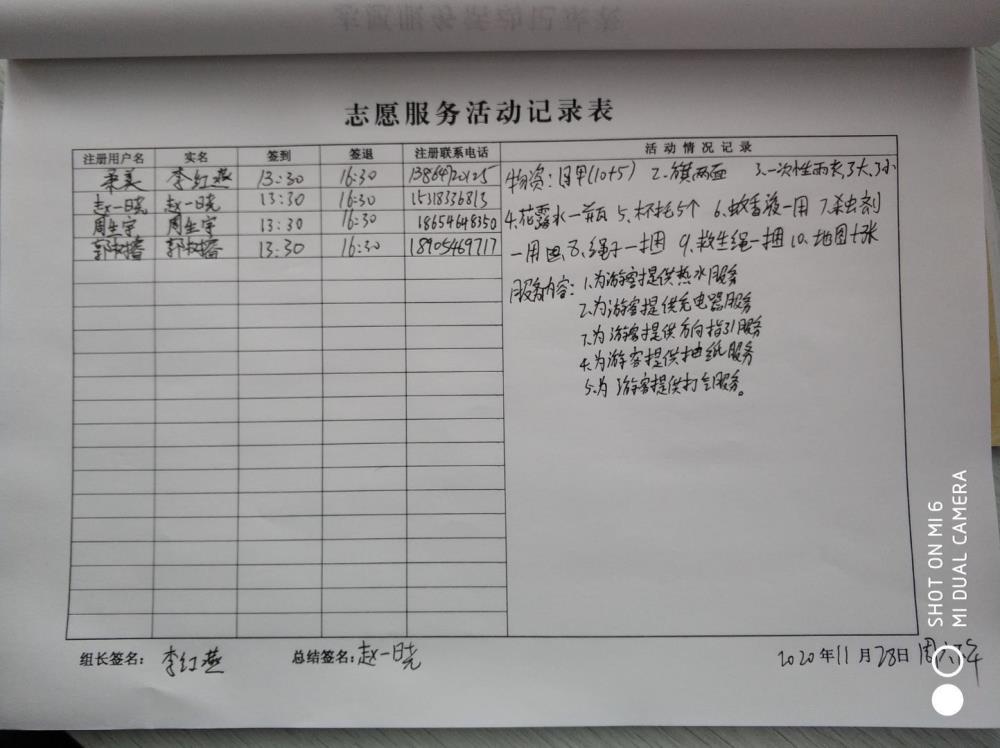 志愿服务活动记录表
注册用户名 实名 签到 签退 注册联系电话 活动情况记录
李红燕 13:30 16:30
赵一晓 赵一晓 13:30 16:30 15318336813
周生宇 周生宇 13:30 16:30 18654648350
13:30 16:30 18905469717
物资: 1.马甲(10+5) 2.旗两面 3.一次性雨衣3大3小
4.花露水一瓶 5.杯托5个 6.蚊香液一用 7.杀虫剂
一用 8.绳子一捆 9.救生绳一捆 10.地图十张
服务内容: 1.为游客提供热水服务
2.为游客提供充电器服务
3.为游客提供方向指引服务
4.为游客提供抽纸服务
5.为游客提供打气服务。
组长签名: 李红燕 总结签名: 赵一晓 2020年11月28日 周六下午
SHOT ON MI 6
MI DUAL CAMERA